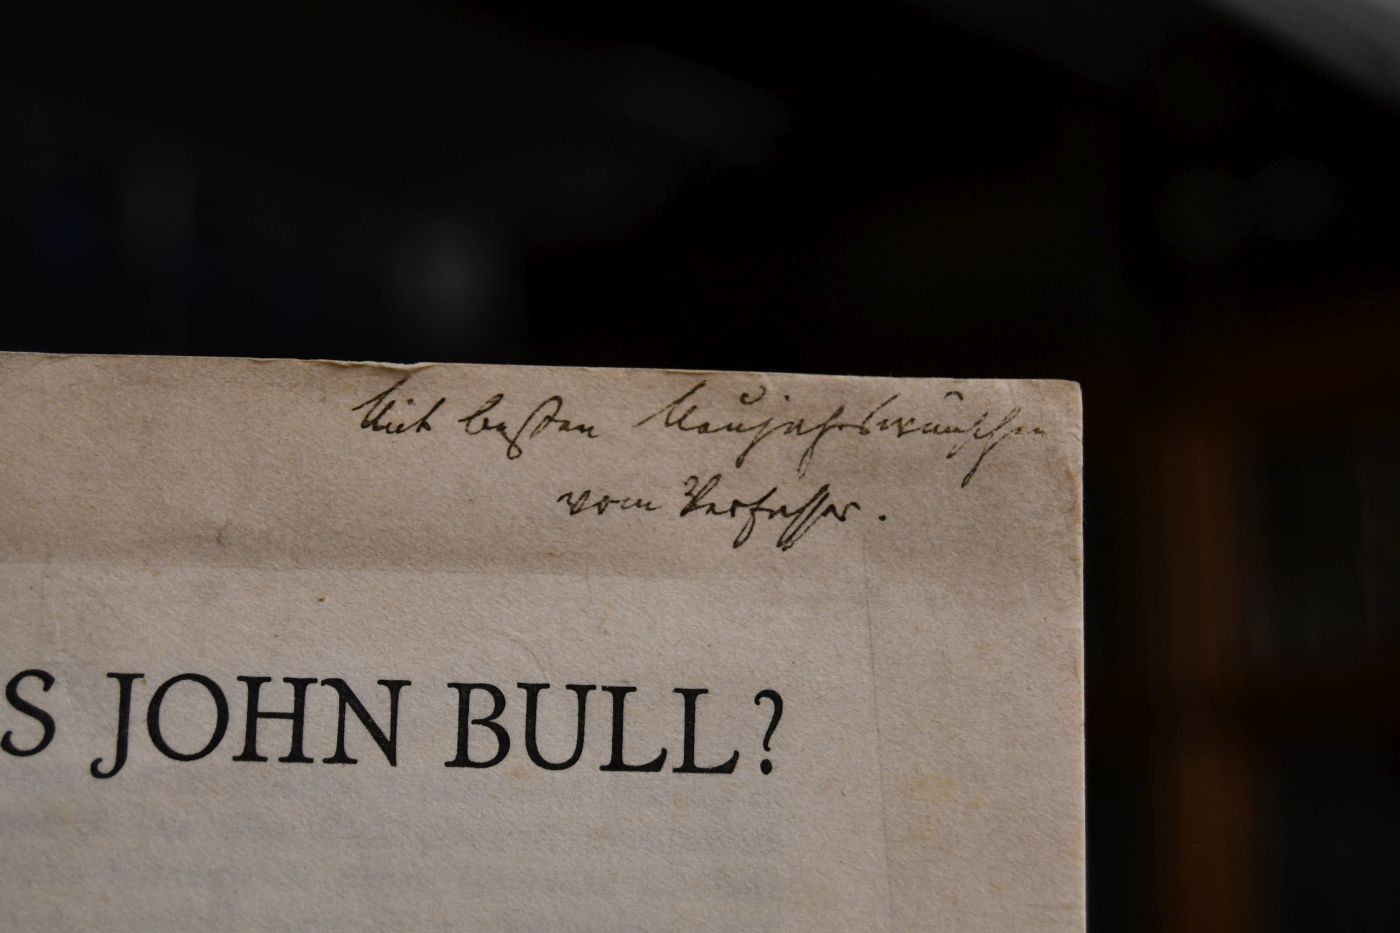 Mit besten Neujahrswünschen
vom Verfasser.
S JOHN BULL?